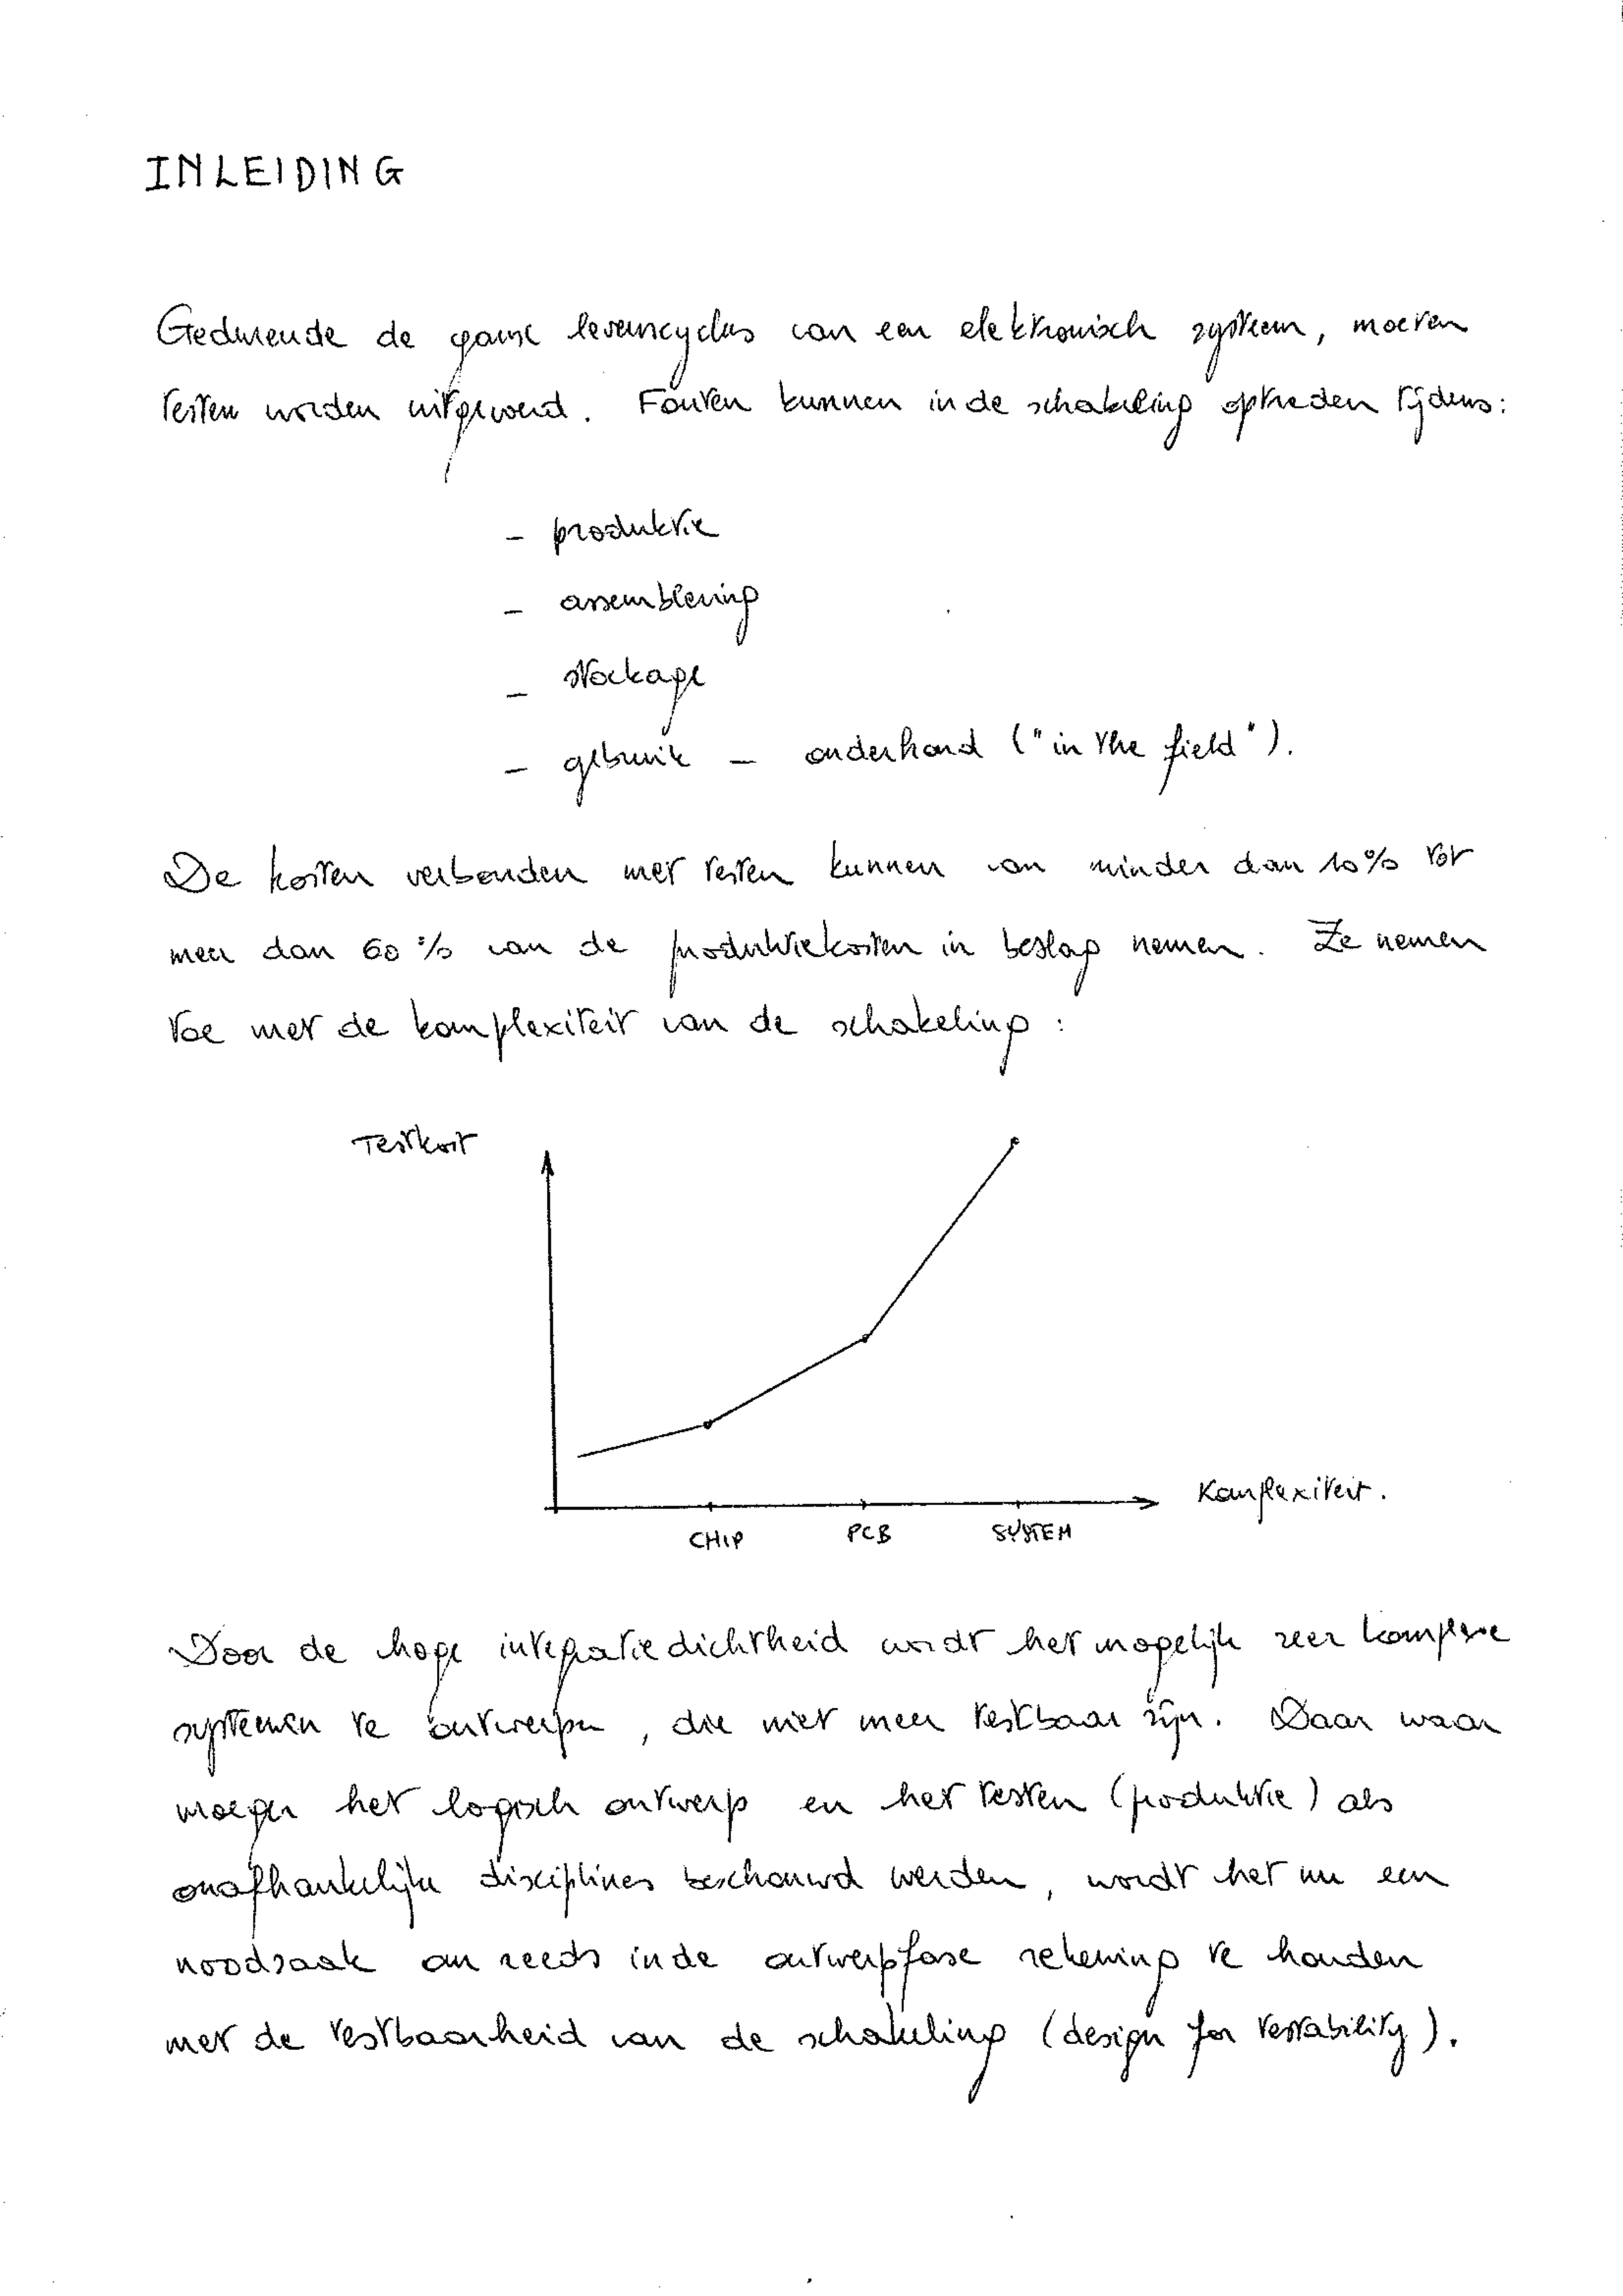 INLEIDING
Gedurende de ganse levenscyclus van een elektronisch systeem, moeten
testen worden uitgevoerd. Fouten kunnen in de schakeling optreden tijdens:
- produktie
- assemblering
- stockage
- gebruik - onderhoud ("in the field").
De kosten verbonden met testen kunnen van minder dan 10% tot
meer dan 60% van de produktiekosten in beslag nemen. Ze nemen
toe met de komplexiteit van de schakeling :
Testkost
Komplexiteit.
CHIP PCB SYSTEM
Door de hoge integratiedichtheid wordt het mogelijk zeer komplexe
systemen te ontwerpen, die niet meer testbaar zijn. Daar waar
vroeger het logisch ontwerp en het testen (produktie) als
onafhankelijke disciplines beschouwd werden, wordt het nu een
noodzaak om reeds in de ontwerpfase rekening te houden
met de testbaarheid van de schakeling (design for testability).